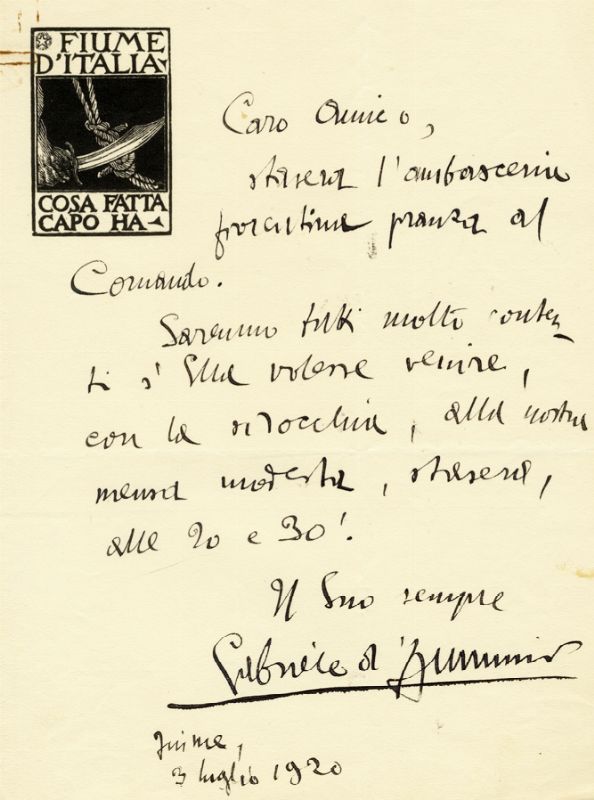 FIUME
D'ITALIA
COSA FATTA
CAPO HA
Caro Amico,
stasera l'ambasceria
fiorentina pranza al
Comando.
Saremmo tutti molto conten-
ti s'Ella volesse venire,
con la sirocchia, alla nostra
mensa modesta, stasera,
alle 20 e 30'.
Il Suo sempre
Gabriele d'Annunzio
Fiume,
3 luglio 1920